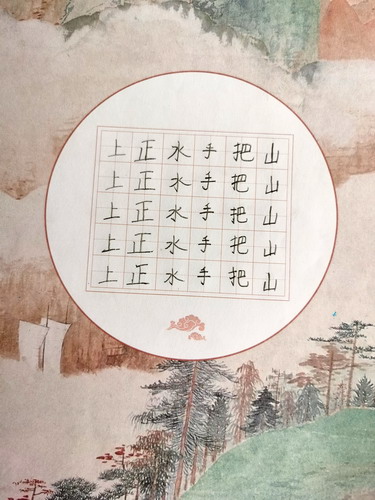 上正水手把山
上正水手把山
上正水手把山
上正水手把山
上正水手把山